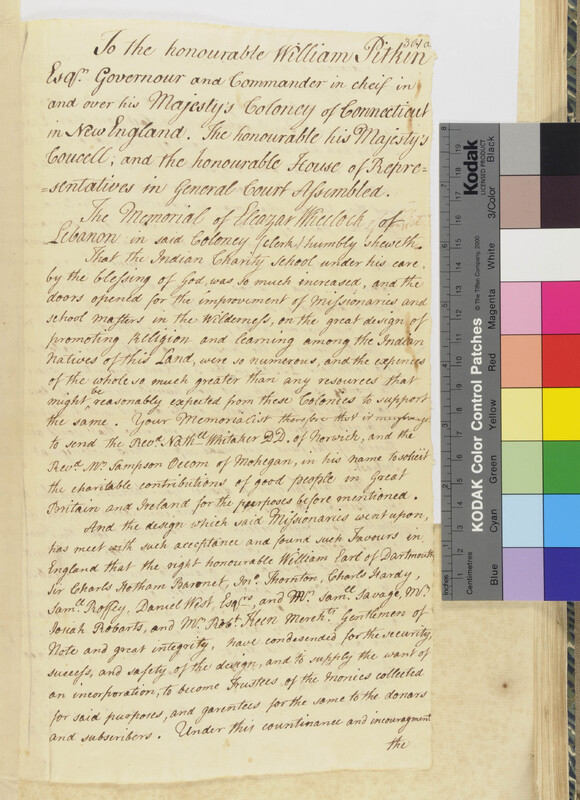 364a
To the honourable William Pitkin
Esqr. Governour and Commander in cheif in
and over his Majesty's Coloney of Connecticut
in New England. The honourable his Majesty's
Coucell; and the honourable House of Repre=
=sentatives in General Court Assembled.
The Memorial of Eleazar Wheelock of
Lebanon in said Coloney (clerk) humbly sheweth.
That the Indian Charity School under his care,
by the blessing of God, was so much increased, and the
doors opened for the improvement of Missionaries and
school masters in the Wilderness, on the great design of
promoting Religion and learning among the Indian
Natives of this Land, were so numerous, and the expences
of the whole so much greater than any resources that
might be reasonably expected from these Colonies to support
the same. Your Memorialist therefore thot it
to send the Revd. Nathll. Whitaker D.D. of Norwich, and the
Revd. Mr. Sampson Occom of Mohegan, in his name to solicit
the charitable contributions of good people in Great
Brittain and Ireland for the purposes before mentioned.
And the design which said Missionaries went upon,
has meet with such acceptance and found such Favours in
England that the right honourable William Earl of Dartmouth
Sir Charls Hotham Baronet, Jno. Thornton, Charls Hardy,
Samll. Roffey, Daniel West, Esqrs, and Mr. Samll. Savage, Mr.
Josiah Robarts, and Mr. Robt. Keen Merchts. Gentlemen of
Note and great integrity, have condesended for the security,
success, and safety of the design, and to supply the want of
an incorporation, to become Trustees of the monies collected
for said purposes, and garentees for the same to the donors
and subscribers. Under this countinance and incouragment
the
Kodak
LICENSED PRODUCT
KODAK Color Control Patches
© The Tiffen Company, 2000
Blue
Cyan
Green
Yellow
Red
Magenta
White
3/Color
Black
inches
Centimetres